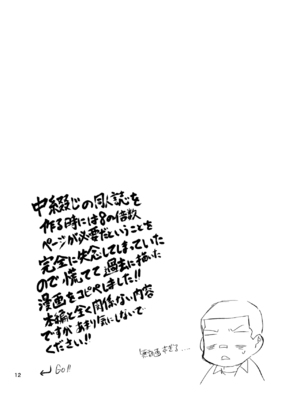 中綴じの同人誌を
作る時には8の倍数
ページが必要だということを
完全に失念してしまっていた
ので慌てて過去に描いた
漫画をコピペしました!!
本編と全く関係ない内容
ですがあまり気にしないで
ください!!
無計画すぎる…
12
GO!!